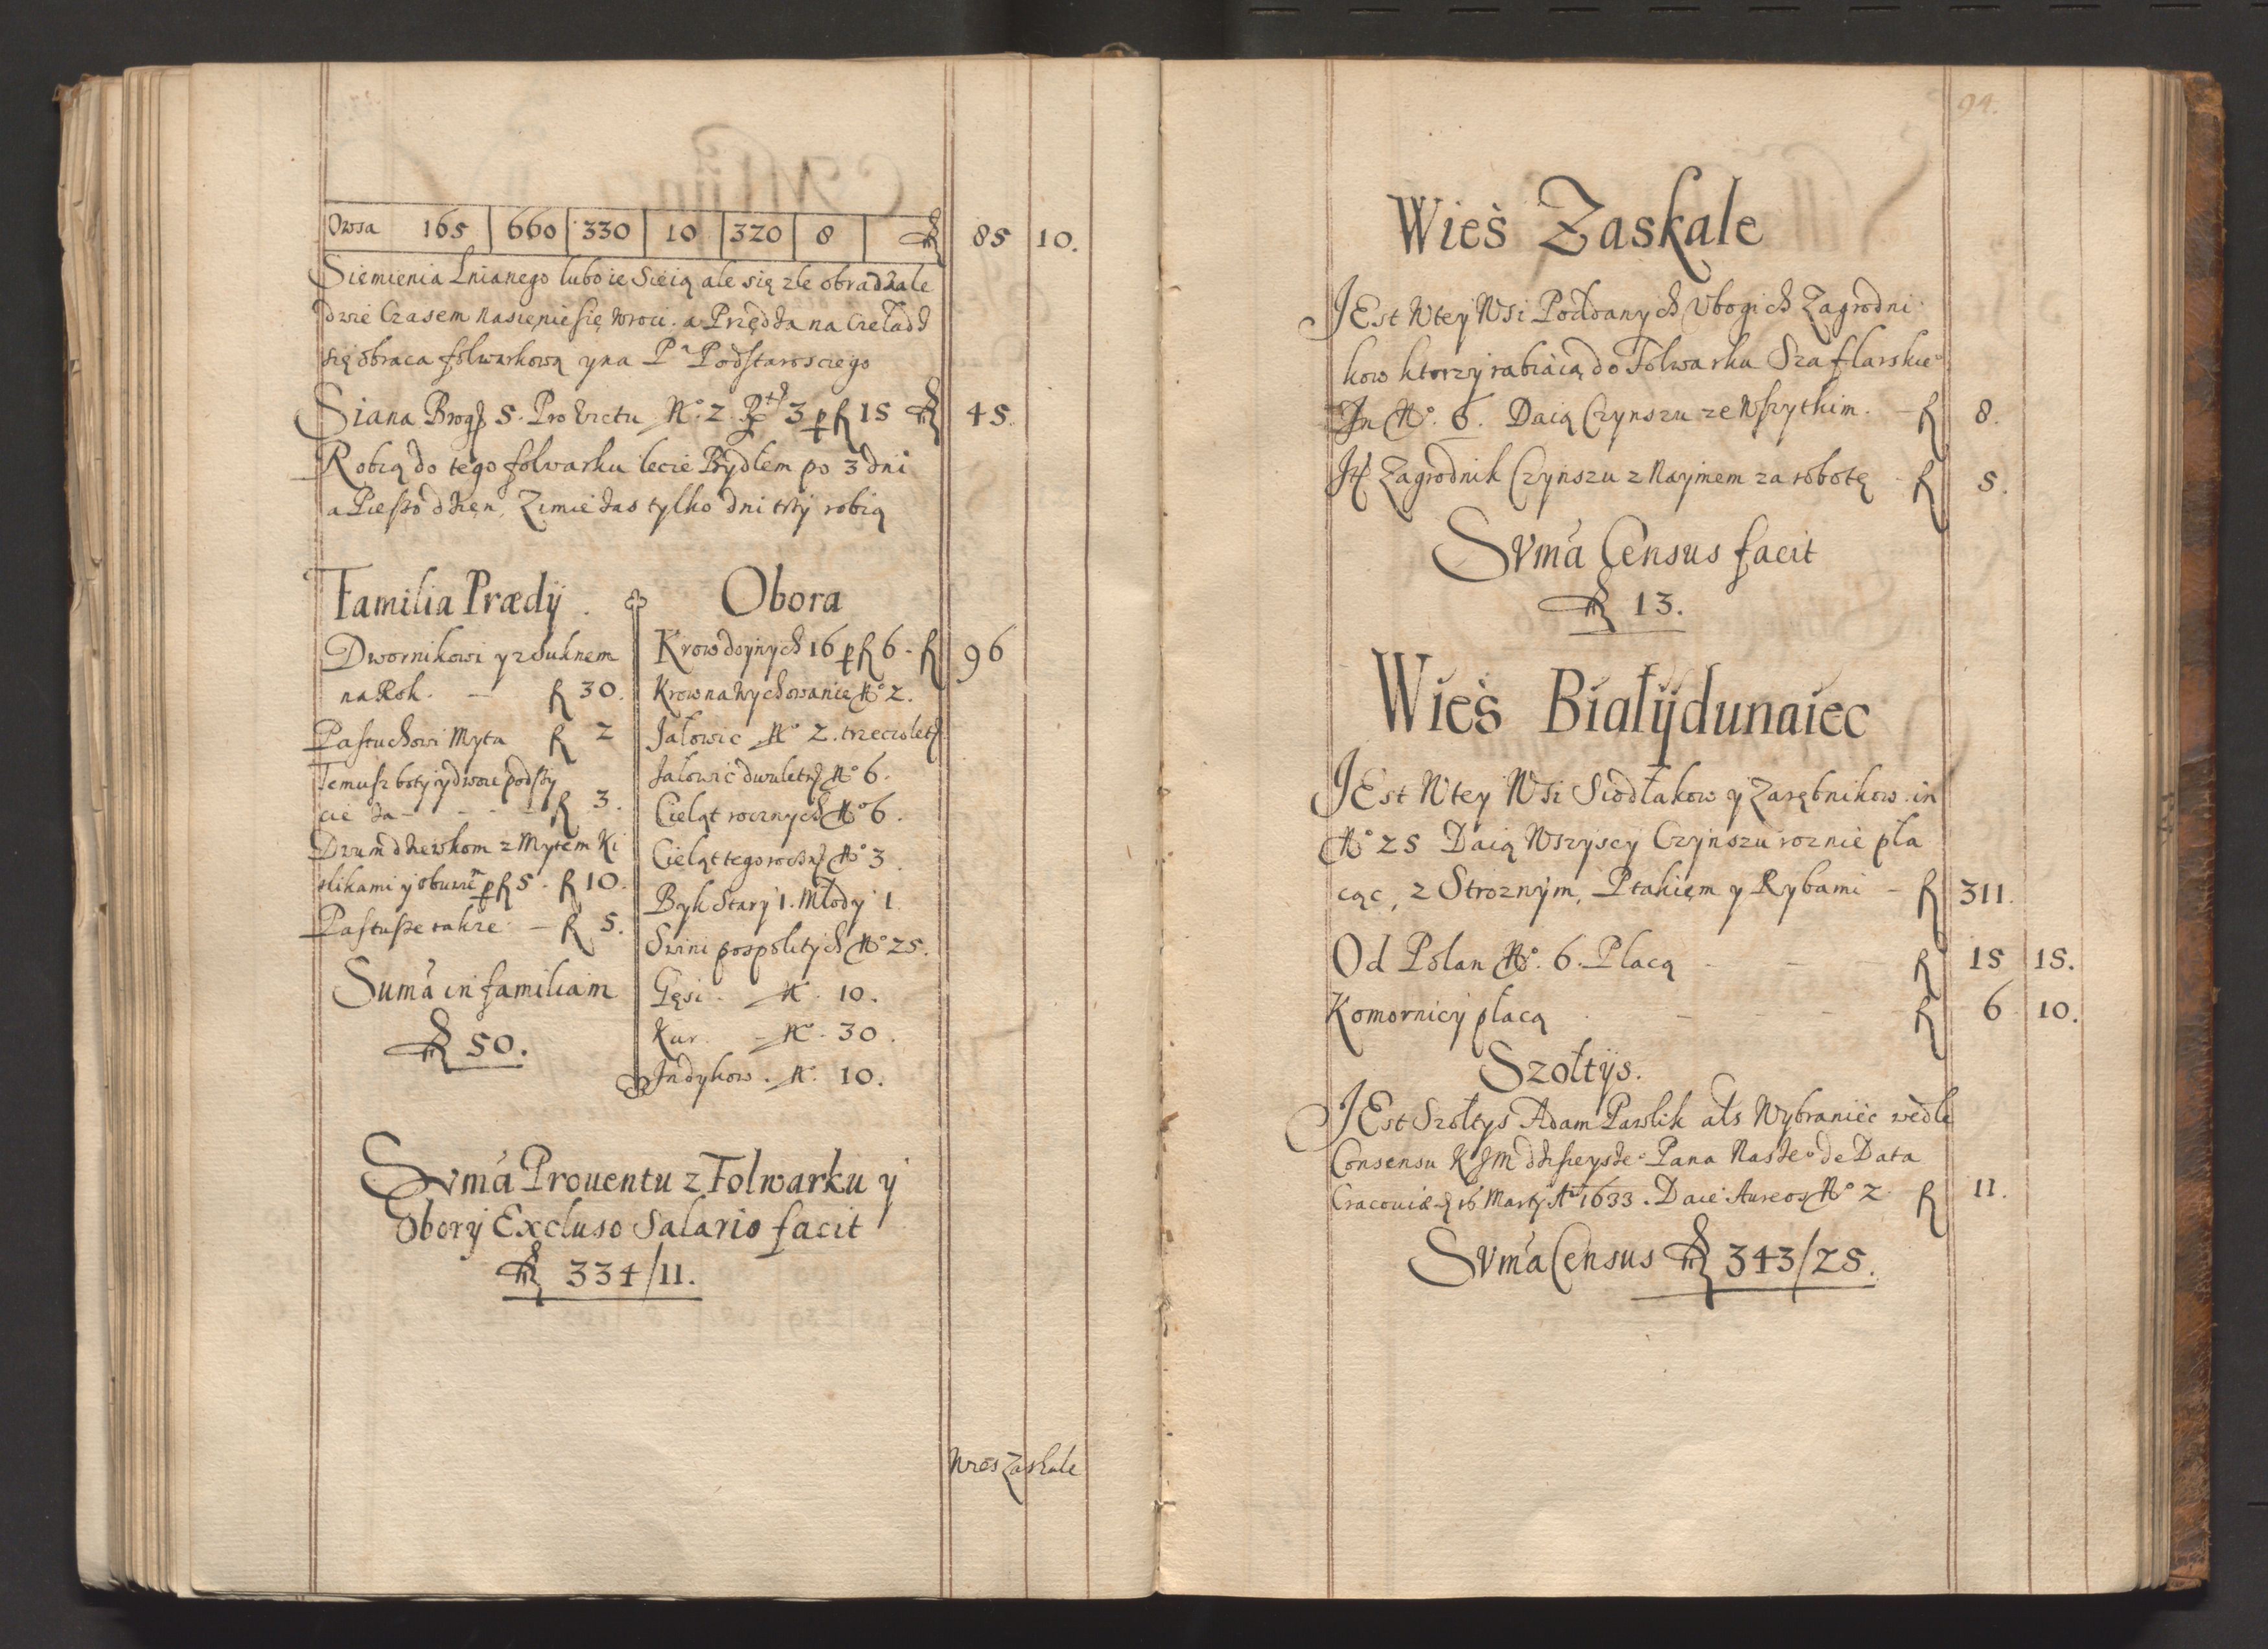 Owsa 165 660 330 10 320 8 85 10.
Siemienia Lnianego lubo ie Sieią ale się zle obradzale
dzie Czasem nasięnie się wroci. a Przędza na Czeladz
się obraca folwarkową y na Pa Podstarosciego
Siana Brog 5. Pro Victu No. 2 3 p f 15 45.
Robią do tego folwarku lecie Bydłem po 3 dni
a Pieszo dzięn, Zimie zas tylko dni trzy robią
Familia Prædij.
Dwornikowi y z suknem
na Rok. – f 30.
Pastuchowi Myta f 2
Temusz boty y dwoie podszy
cie za – – – f 3.
Dwum dziewkom z Mytem Ki
tlikami y obuwim p f 5. f 10.
Pastusze takze – f 5.
Suma in familiam
50.
Obora
Krow doynych 16 p f 6 – f 96
Krow na Wychowanie No 2.
Jałowic No 2. trzeciolet
Jałowic dwuletn No 6.
Cieląt rocznych No 6.
Cieląt tegoroczn No 3.
Byk Stary 1. Młody 1
Swini pospolitych No 25.
Gęsi. – N. 10.
Kur. – N. 30.
Jndykow. N. 10.
Svmá Prouentu z Folwarku y
Obory Excluso Salario facit
334/11.
Wies Zaskale
94.
Wieś Zaskale
JEst W tey Wsi Poddanych Vbogich Zagrodni
kow ktorzy rabiaią do Folwarku Szaflarskieo
Jn No. 6. Daią Czynszu ze Wszytkim. – f 8.
Jt Zagrodnik Czynszu z Naymem za robotę – f 5.
Svmá Census facit
13.
Wieś Białydunaiec
JEst W tey Wsi Siodłakow y Zarębnikow. in
No 25 Daią Wszyscy Czynszu roznie pła
cąc, z Stroznym, Ptakięm y Rybami – f 311.
Od Polan No. 6. Placą – – – f 15 15.
Komornicy placą – – – f 6 10.
Szołtys.
JEst Szołtys Adam Pawlik als Wybraniec wedle
Consensu KJM dzisieyszeo Pana Naszeo de Data
Cracouiæ 16 Martij Ao 1633. Daie Aureos No 2 f 11.
Svmá Census 343/25.